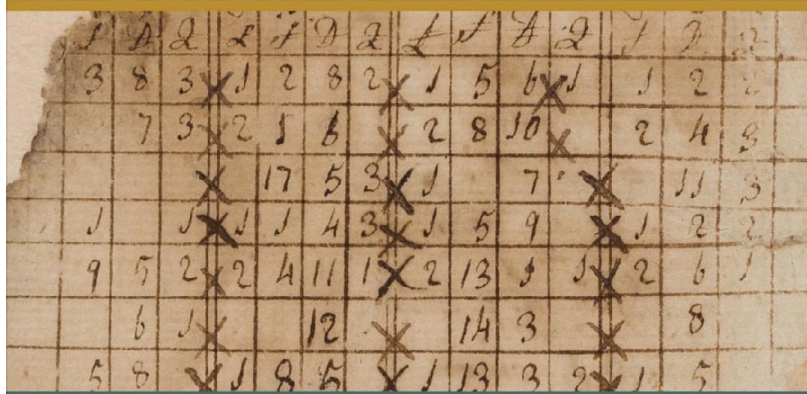 S D Q £ S D Q £ S D Q S D Q
3 8 3 X 1 2 8 2 X 1 5 6 X 1 1 2 2
7 3 X 2 1 6 X 2 8 10 X 2 4 3
X 17 5 3 X 1 7 X 11 3
1 1 X 1 1 4 3 X 1 5 9 X 1 2 2
9 5 2 X 2 4 11 1 X 2 13 1 1 X 2 6 1
6 1 X 12 X 14 3 X 8
5 8 X 1 8 5 X 1 13 3 2 X 1 5